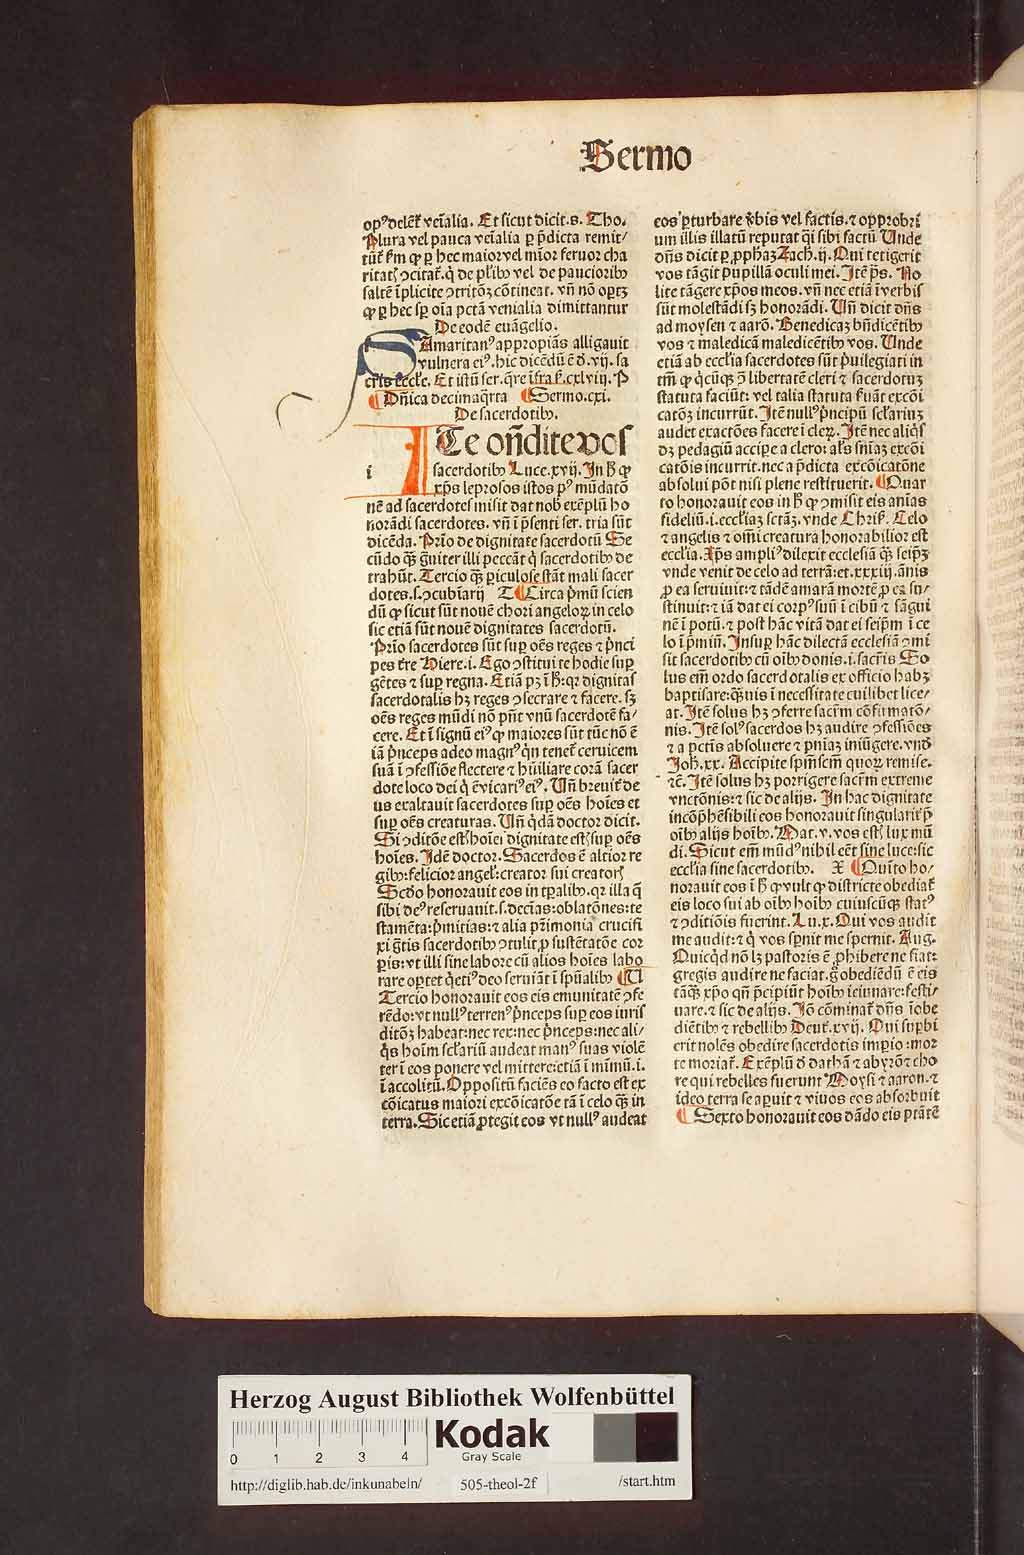 Sermo
opꝰ delēt̉ veīalia. Et sicut dicit.s. Tho.
Plura vel pauca veīalia ꝑ p̄dicta remit/
tūt̉ ẜm ꝙ ꝑ hec maior vel mīor feruor cha
ritatꝭ ꝯcitat̉. q̇ de pl'ibꝰ vel de pauciorib
saltē īplicite ꝯtritōꝫ cōtineat. vn̄ nō oꝑtꝫ
ꝙ ꝑ hec sꝑ oīa pctā venialia dimittantur
De eodē euāgelio.
SAmaritanꝰ appropiās alligauit
vulnera eiꝰ. hic dicēdū ē ð .vij. sa
cr̄is eccl'e. Et istū ser. q̄re īfra ẜ.cxlviij. P
¶ Dn̄ica decimaq̄rta ¶ Sermo.cxi.
De sacerdotibꝰ.
ITe on̄dite vos
i
sacerdotibꝰ Luce.xvij. In h̄ ꝙ
xp̄s leprosos istos pꝰ mūdatō
nē ad sacerdotes misit dat nob exēplū ho
norādi sacerdotes. vn̄ ī p̄senti ser. tria sūt
dicēda. Prīo de dignitate sacerdotū Se
cūdo qꝫ ḡuiter illi peccāt q̇ sacerdotibꝰ de
trahūt. Tercio qꝫ ꝑiculose stāt mali sacer
dotes.s. ꝯcubīarij T ¶ Circa p̄mū scien
dū ꝙ sicut sūt nouē chori angeloꝝ in celo
sic etiā sūt nouē dignitates sacerdotū.
Prīo sacerdotes sūt suꝑ oēs reges ⁊ p̄nci
pes t̄re Hiere.i. Ego ꝯstitui te hodie suꝑ
gētes ⁊ suꝑ regna. Etiā pꝫ ī h̄: qꝛ dignitas
sacerdotalis hꝫ reges ꝯsecrare ⁊ facere. sꝫ
oēs reges mūdi nō pn̄t vnū sacerdotē fa/
cere. Et ī signū eiꝰ ꝙ maiores sūt tūc nō ē
iā p̄nceps adeo magnꝰ q̇n tenet̉ ceruicem
suā ī ꝯfessiōe flectere ⁊ hūiliare corā sacer
dote loco dei q̇ ē vicariꝰ eiꝰ. Vn̄ breuit̉ de
us exaltauit sacerdotes suꝑ oēs hoīes et
suꝑ oēs creaturas. Vn̄ q̇dā doctor dicit.
Si ꝯditōe est hoīei dignitate est suꝑ oēs
hoīes. Idē doctor. Sacerdos ē altior re
gibꝰ: felicior angel': creator sui creatorꝭ
Scd̄o honorauit eos in tꝑalibꝰ. qꝛ illa q̄
sibi deꝰ reseruauit.s. decīas: oblatōnes: te
stamēta: p̄mitias: ⁊ alia pr̄imonia crucifi
xi gr̄tis sacerdotibꝰ ꝯtulit, ꝓ sustētatōe cor
ꝑis: vt illi sine labore cū alios hoīes labo
rare oꝑtet q̇etiꝰ deo seruiāt ī spūalibꝰ ¶ V
Tercio honorauit eos eis emunitatē ꝯfe
rēdo: vt nullꝰ terrenꝰ p̄nceps suꝑ eos iuris
ditōꝫ habeat: nec rex: nec p̄nceps: nec ali/
q̇s hoīm scl'ariū audeat manꝰ suas violē
ter ī eos ponere vel mittere: etiā ī mīmū.i.
ī accolitū. Oppositū faciēs eo facto est ex
cōicatus maiori excōicatōe tā ī celo qꝫ in
terra. Sic etiā ꝓtegit eos vt nullꝰ audeat
eos ꝑturbare v̄bis vel factis. ⁊ opprobri
um illis illatū reputat q̇i sibi factū Unde
dn̄s dicit ꝑ ꝓpphaꝫ Zach.ij. Qui tetigerit
vos tāgit pupillā oculi mei. Itē ps̄. No
lite tāgere xp̄os meos. vn̄ nec etiā ī verbis
sūt molestādi sꝫ honorādi. Vn̄ dicit dn̄s
ad moysen ⁊ aarō. Benedicaꝫ bn̄dicētibꝰ
vos ⁊ maledicā maledicētibꝰ vos. Unde
etiā ab eccl'ia sacerdotes sūt p̄uilegiati in
tm̄ ꝙ q̇cūqꝫ ꝯ̄ libertatē cleri ⁊ sacerdotuꝫ
statuta faciūt: vel talia statuta ẜuāt excōi
catōꝫ incurrūt. Itē nullꝰ p̄ncipū scl'ariuꝫ
audet exactōes facere ī cleꝝ. Itē nec aliq̇s
dꝫ pedagiū accipe a clero: al's sn̄iaꝫ excōi
catōis incurrit. nec a p̄dicta excōicatōne
absolui pōt nisi plene restituerit. ¶ Quar
to honorauit eos in h̄ ꝙ ꝯmisit eis anīas
fideliū.i. eccl'iaꝫ sctāꝫ. vnde Chriẜ. Celo
⁊ angelis ⁊ om̄i creatura honorabilior est
eccl'ia. Xp̄s ampliꝰ dilexit ecclesiā qꝫ seipꝫ
vnde venit de celo ad terrā: et .xxxiij. ānis
ꝓ ea seruiuit: ⁊ tādē amarā mortē ꝓ ea su/
stinuit: ⁊ iā dat ei corpꝰ suū ī cibū ⁊ sāgui
nē ī potū. ⁊ post hāc vitā dat ei seip̄m ī ce
lo ī p̄miū. Insuꝑ hāc dilectā ecclesiā ꝯmi
sit sacerdotibꝰ cū oībꝰ donis.i. sacr̄is So
lus em̄ ordo sacerdotalis ex officio habꝫ
baptisare: qꝫuis ī necessitate cuilibet lice/
at. Itē solus hꝫ ꝯferre sacr̄m cōfirmatō/
nis. Itē solꝰ sacerdos hꝫ audire ꝯfessiōes
⁊ a pctīs absoluere ⁊ pn̄iaꝫ iniūgere. vnð
Joh̄.xx. Accipite spm̄scm̄ quoꝝ remise.
⁊c̄. Itē solus hꝫ porrigere sacr̄m extreme
vnctōnis: ⁊ sic de alijs. In hac dignitate
incōp̄hēsibili eos honorauit singularit̉ p̄
oībꝰ alijs hoībꝰ. Mat.v. vos est' lux mū
di. Sicut em̄ mūdꝰ nihil eēt sine luce: sic
eccl'ia sine sacerdotibꝰ. X ¶ Quīto ho/
norauit eos ī h̄ ꝙ vult ꝙ districte obediat̉
eis loco sui ab oībꝰ hoībꝰ cuiuscūqꝫ statꝰ
⁊ ꝯditiōis fuerint. Lu.x. Qui vos audit
me audit: ⁊ q̇ vos sꝑnit me spernit. Aug.
Quicq̇d nō lꝫ pastoris ē ꝓhibere ne fiat:
gregis audire ne faciat. gͦ obediēdū ē eis
tāqꝫ xp̄o qn̄ p̄cipiūt hoībꝰ ieiunare: festi/
uare. ⁊ sic de alijs. Iō cōminat̉ dn̄s īobe
diētibꝰ ⁊ rebellibꝰ Deut̉.xvij. Qui suꝑbi
erit nolēs obedire sacerdotis imperio: mor
te moriat̉. Exēplū ð dathā ⁊ abyrō ⁊ cho
re qui rebelles fuerunt Moysi ⁊ aaron. ⁊
ideo terra se aꝑuit ⁊ viuos eos absorbuit
¶ Sexto honorauit eos dādo eis ptātē
Herzog August Bibliothek Wolfenbüttel
0 1 2 3 4
Kodak
Gray Scale
http://diglib.hab.de/inkunabeln/ 505-theol-2f /start.htm